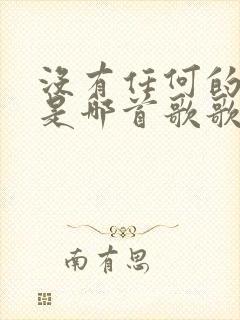 没有任何的
是那首歌歌
南有思